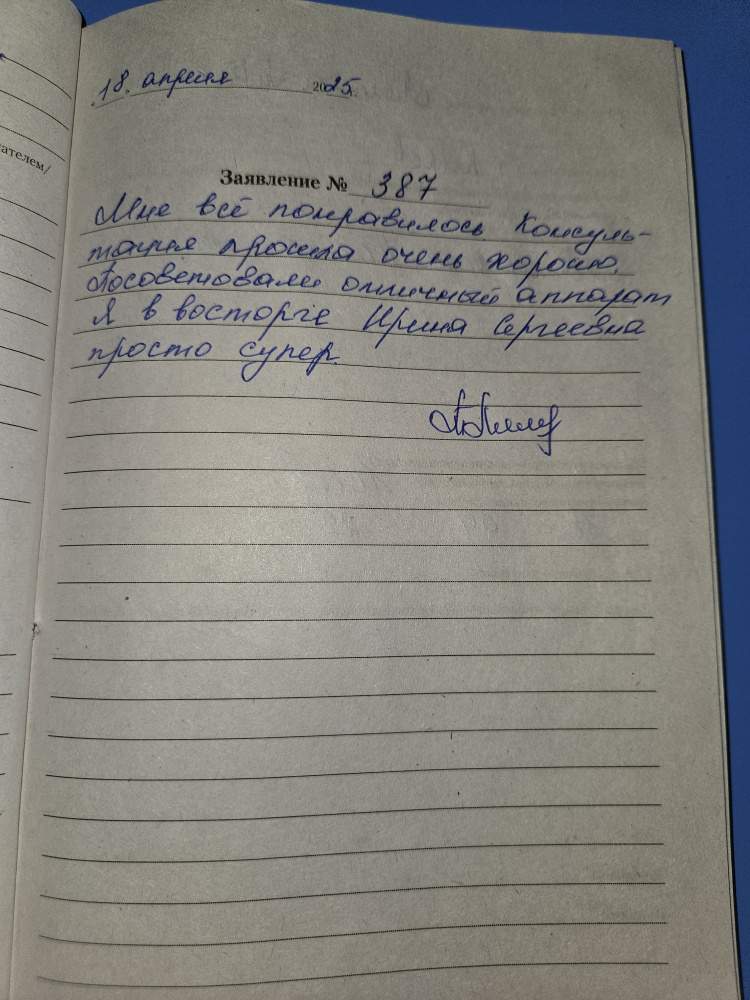 18. апреля 2025.
ателем/
Заявление № 387
Мне всё понравилось. Консуль-
тация прошла очень хорошо.
Посоветовали отличный аппарат
Я в восторге Ирина Сергеевна
просто супер.